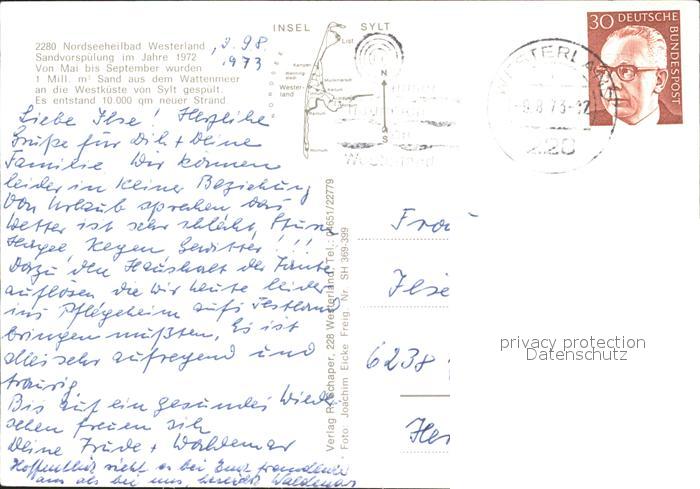 INSEL SYLT
30 DEUTSCHE
BUNDESPOST
2280 Nordseeheilbad Westerland
Sandvorspülung im Jahre 1972
Von Mai bis September wurden
1 Mill. m³ Sand aus dem Wattenmeer
an die Westküste von Sylt gespult.
Es entstand 10.000 qm neuer Strand
1973
List
Kampen
Wester-
land
N
S
WESTERLAND
-9.8.73-12
228
Westerland
Liebe Ilse! Herzliche
Grüße für Dich + Deine
Familie. Wir können
leider in keiner Beziehung
von Urlaub sprechen das
Wetter ist sehr schlecht, Sturm
Hagel Regen Gewitter!!!
Dazu den Haushalt der Tante
auflösen die wir heute leider
ins Pflegeheim aufs Festland
bringen mußten. Es ist
alles sehr aufregend und
traurig
Bis auf ein gesundes Wieder
sehen freuen sich
Deine Trude + Waldemar
Hoffentlich sieht es bei Euch
aus als bei uns, Waldemar
Verlag R. Schaper, 228 Westerland, Tel.: 04651/22779
Foto Joachim Eicke Freig. Nr. SH 369-399
Frau
Ilse
6238
privacy protection
Datenschutz